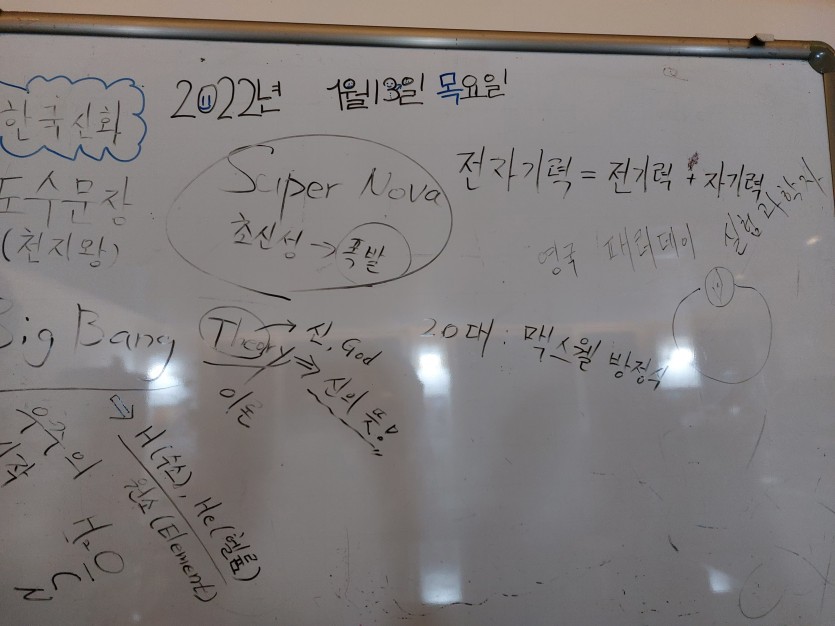 2022년 1월13일 목요일
한국신화
도수문장
(천지왕)
Super Nova
초신성 → 폭발
전자기력 = 전기력 + 자기력
영국 패러데이 실험과학자
Big Bang Theory → 신, God
⇒ 신의 뜻!
이론
20대 : 맥스웰 방정식
우주의
시작
H(수소), He(헬륨)
원소(Element)
H₂O
C
N